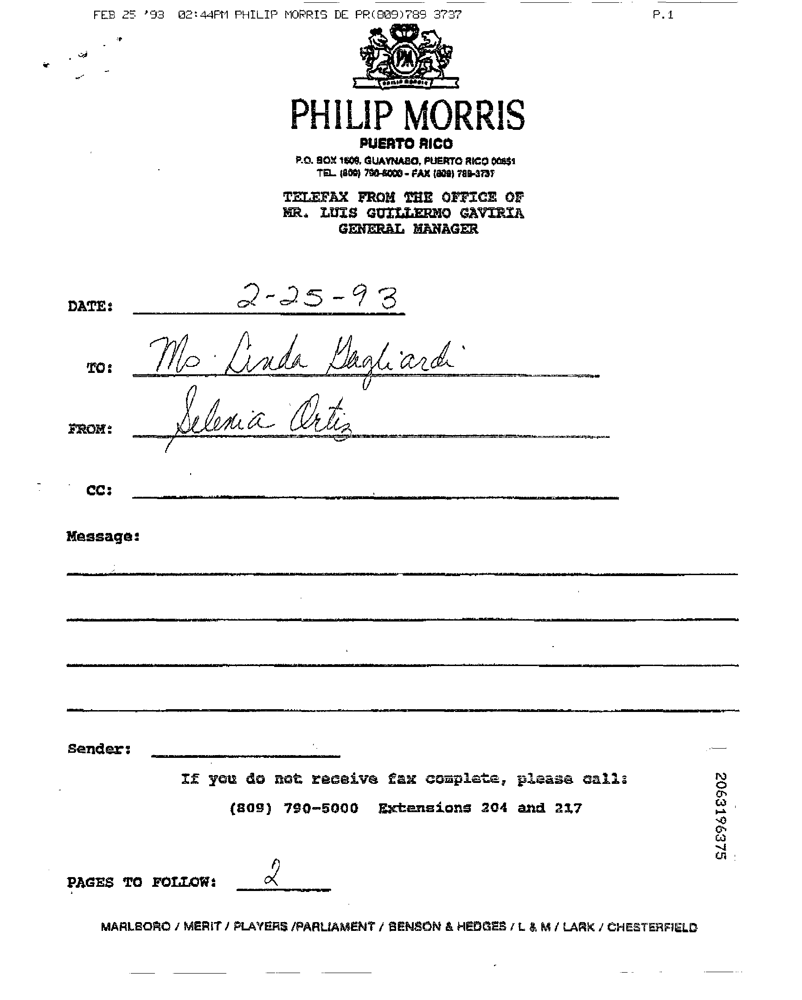 FEB 25 '93 02:44PM PHILIP MORRIS DE PR(809)789 3737 P.1
PM
PHILIP MORRIS
PHILIP MORRIS
PUERTO RICO
P.O. BOX 1609, GUAYNABO, PUERTO RICO 00651
TEL. (809) 790-5000 - FAX (809) 789-3737
TELEFAX FROM THE OFFICE OF
MR. LUIS GUILLERMO GAVIRIA
GENERAL MANAGER
DATE: 2-25-93
TO: Ms. Linda Gagliardi
FROM: Selenia Ortiz
CC:
Message:
Sender:
If you do not receive fax complete, please call:
(809) 790-5000 Extensions 204 and 217
2063196375
PAGES TO FOLLOW: 2
MARLBORO / MERIT / PLAYERS /PARLIAMENT / BENSON & HEDGES / L & M / LARK / CHESTERFIELD